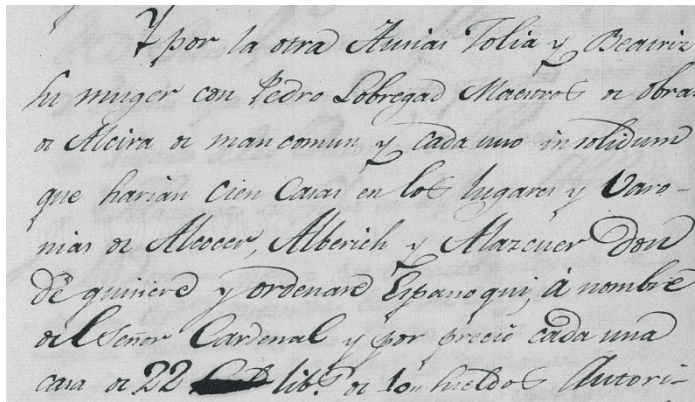 Y por la otra Ausias Tolia y Beatriz
su muger con Pedro Lobregad Maestros de obras
de Alcira de mancomun y cada uno insolidum
que harian cien Casas en los lugares y Varo-
nias de Alcocer, Alberich y Alazcuer don
de quisiere y ordenare Espanoqui, á nombre
del Señor Cardenal y por precio cada una
casa de 22 lib.s de sueldos Autori-